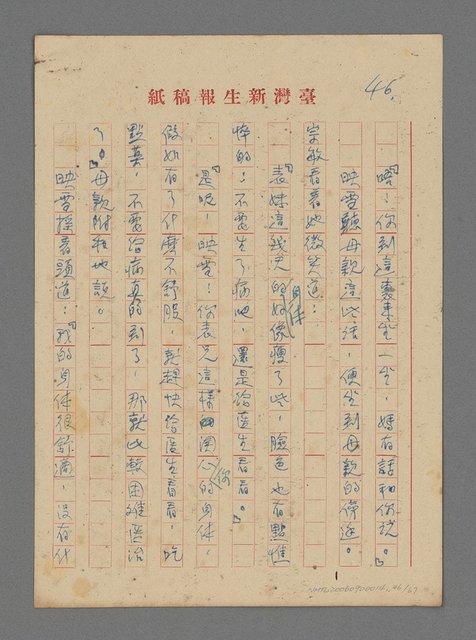 46.
紙稿報生新灣臺
「唔！你到這裏來坐一坐，媽有話和你說。」
映雪聽母親這些話，便坐到母親的傍邊。
宗敏看着她微笑道：
「表妹這幾天的身体好像瘦了些，臉色也有點憔
悴的：不要生了病吧，還是給医生看看。」
「是呢！映雪！你表兄這樣関心你的身体，
假如有了什麼不舒服，就趕快給医生看看，吃
點葯，不要等病真的到了，那就比較困难医治
了。」母親附和地說。
映雪搖着頭道：「我的身体很舒適，沒有什
1